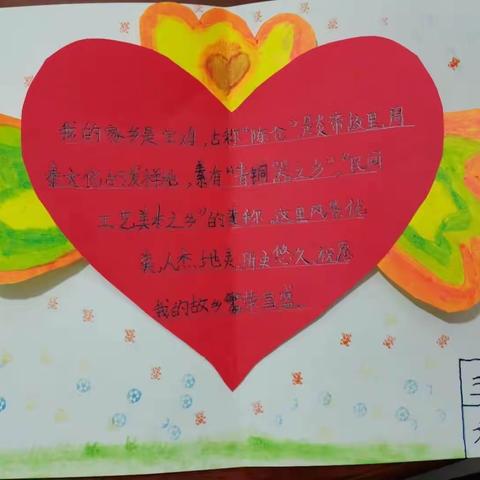 我的家乡是宝鸡,古称“陈仓”,是炎帝故里、周
秦文化的发祥地,素有“青铜器之乡”、“民间
工艺美术之乡”的美称,这里风景优
美,人杰地灵,历史悠久,祝愿
我的故乡繁荣昌盛。
三